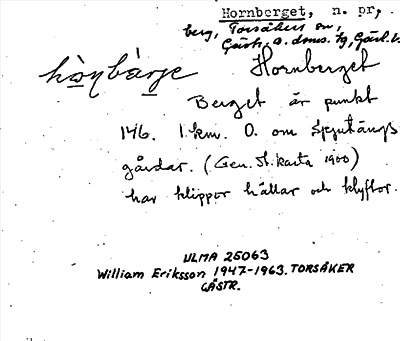 Hornberget, n. pr,
berg, Torsåkers sn,
Gästr. ö. doms. tg, Gävl. l.
Hornberget
Berget är punkt
146. 1 km. O. om Spjutängs
gårdar. (Gen. St. karta 1900)
har klippor hällar och klyftor.
ULMA 25063
William Eriksson 1947-1963. TORSÅKER
GÄSTR.